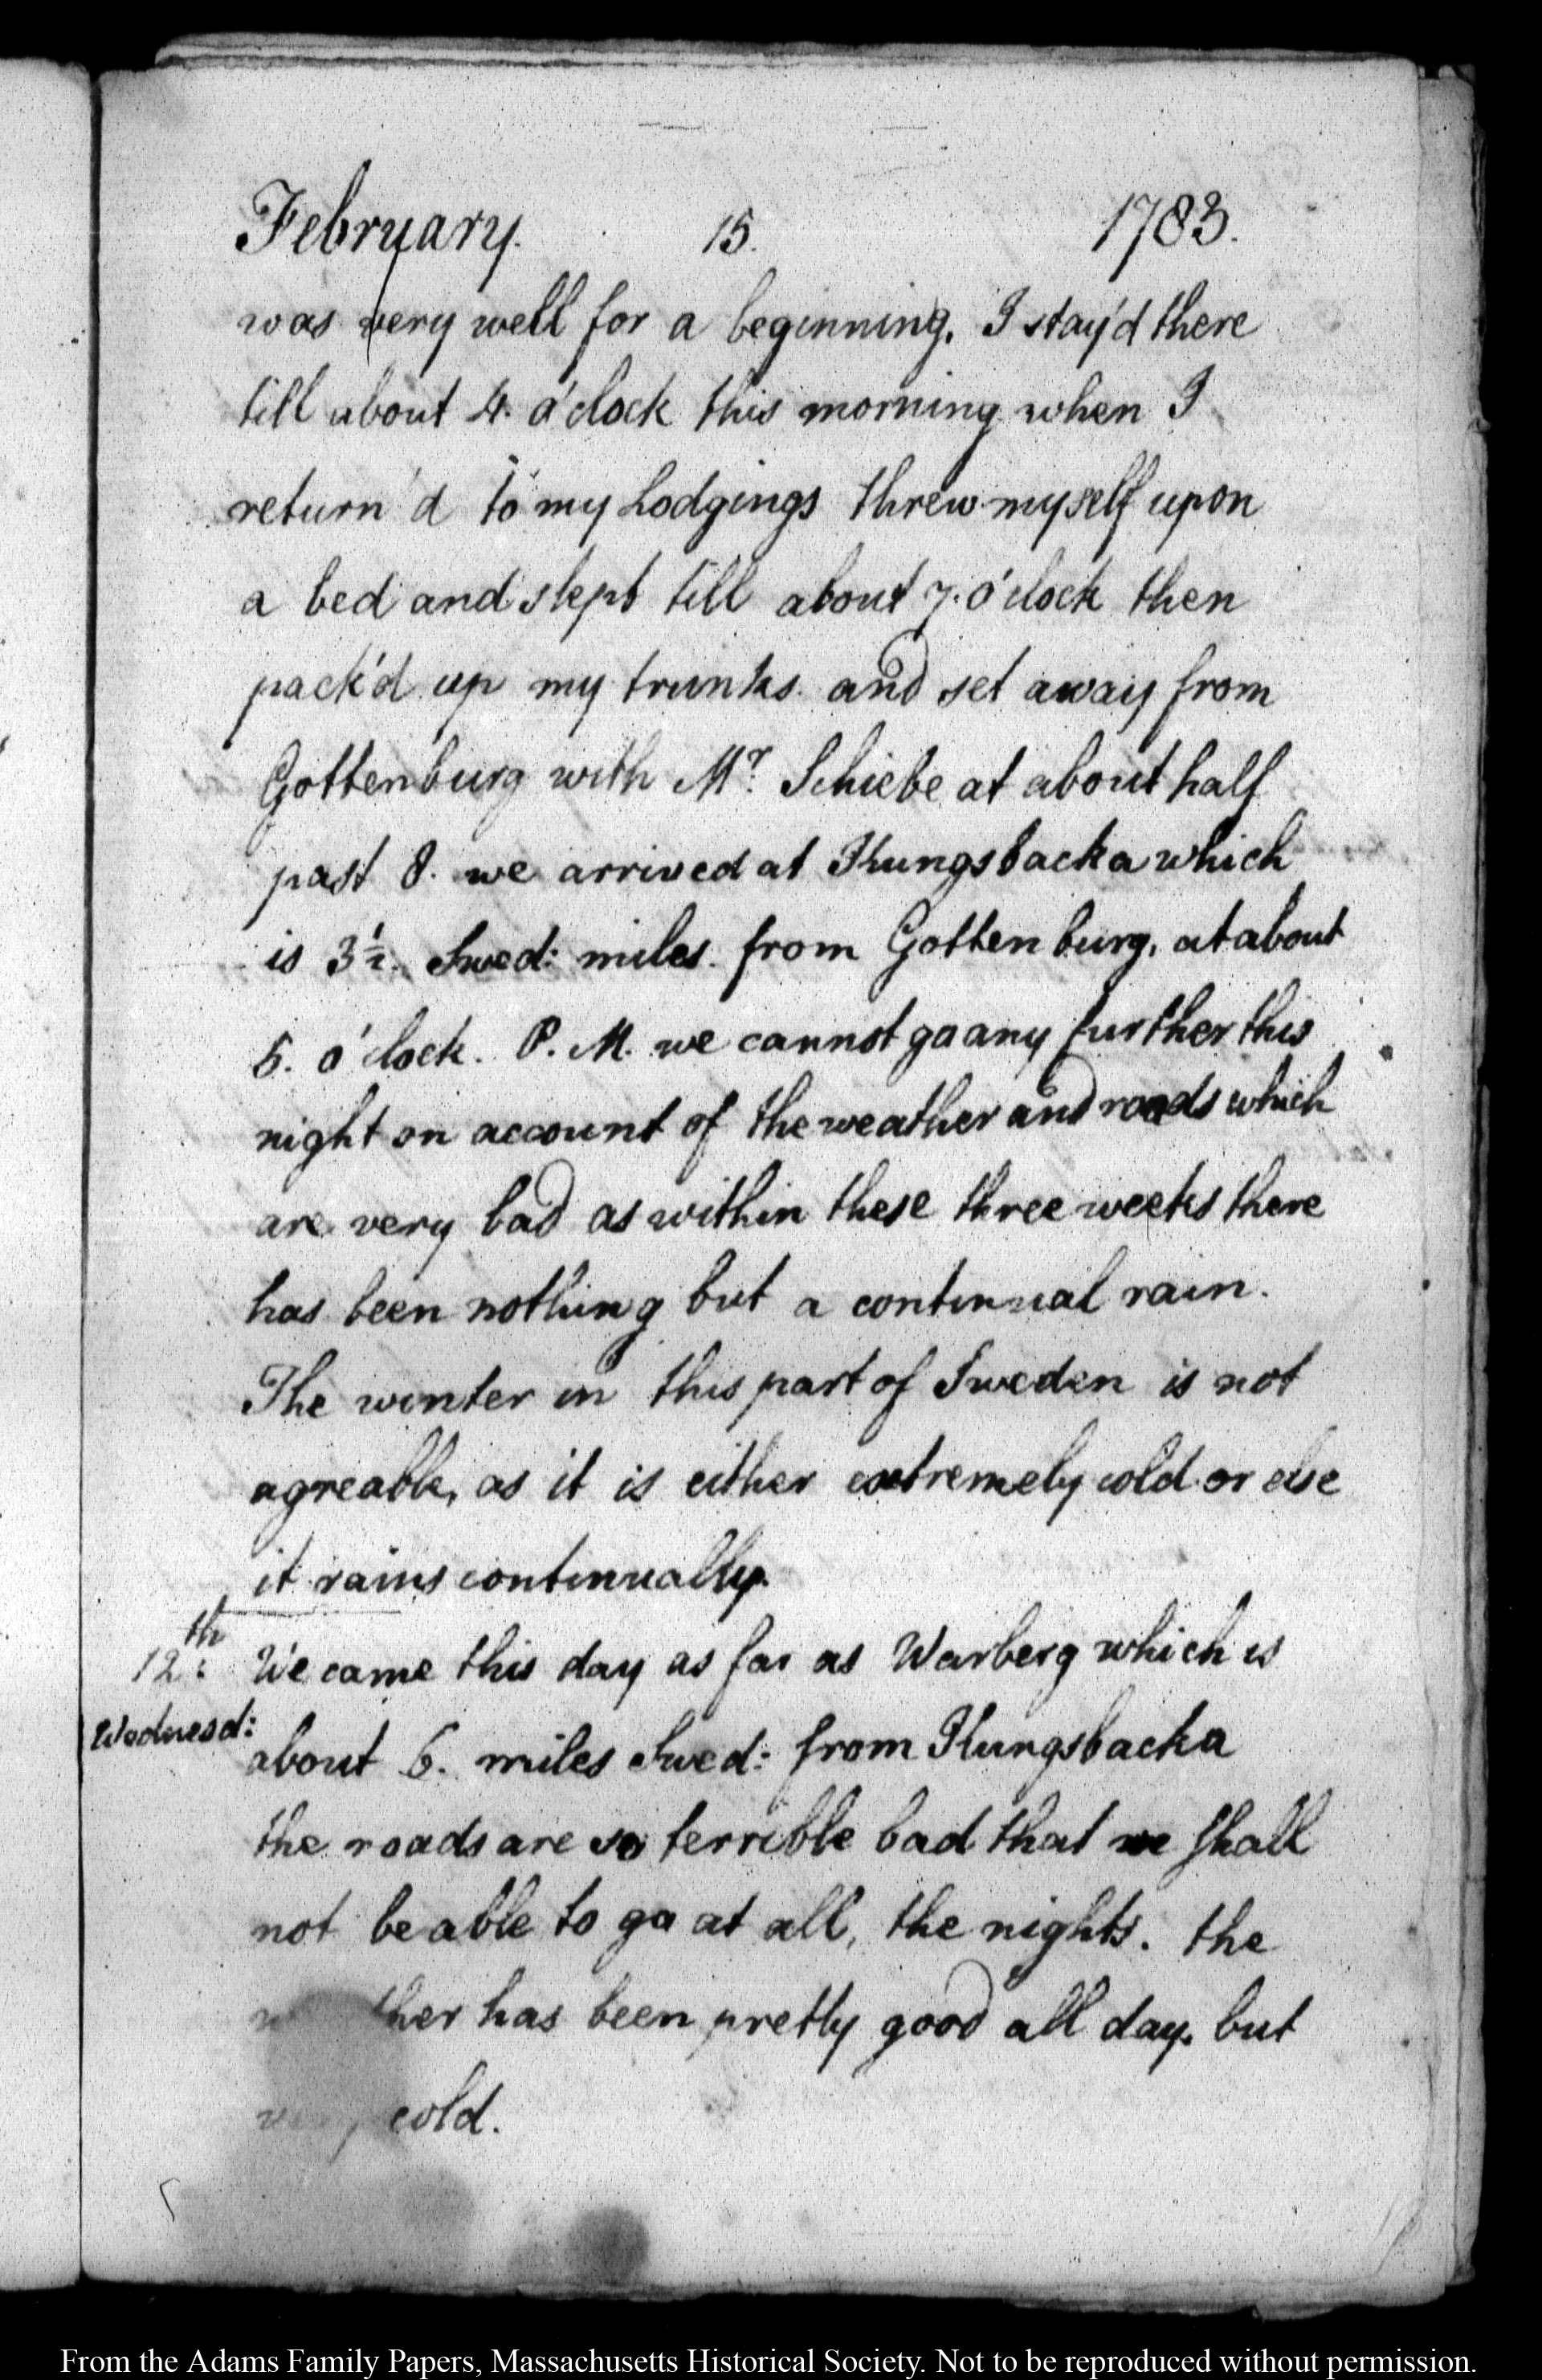 February. 15. 1783.
was very well for a beginning. I stay'd there
till about 4. o'clock this morning when I
return'd to my Lodgings threw myself upon
a bed and slept till about 7. o'clock then
pack'd up my trunks and set away from
Gottenburg with Mr. Schiebe at about half
past 8. we arrived at Kungsbacka which
is 3½. Swed: miles from Gottenburg, at about
5. o'clock. P. M. we cannot go any further this
night on account of the weather and roads which
are very bad as within these three weeks there
has been nothing but a continual rain.
The winter in this part of Sweden is not
agreable, as it is either extremely cold or else
it rains continually.
12th: We came this day as far as Warberg which is
Wednesd:
about 6. miles Swed: from Kungsbacka
the roads are so terrible bad that we shall
not be able to go at all, the nights. the
weather has been pretty good all day, but
very cold.
From the Adams Family Papers, Massachusetts Historical Society. Not to be reproduced without permission.